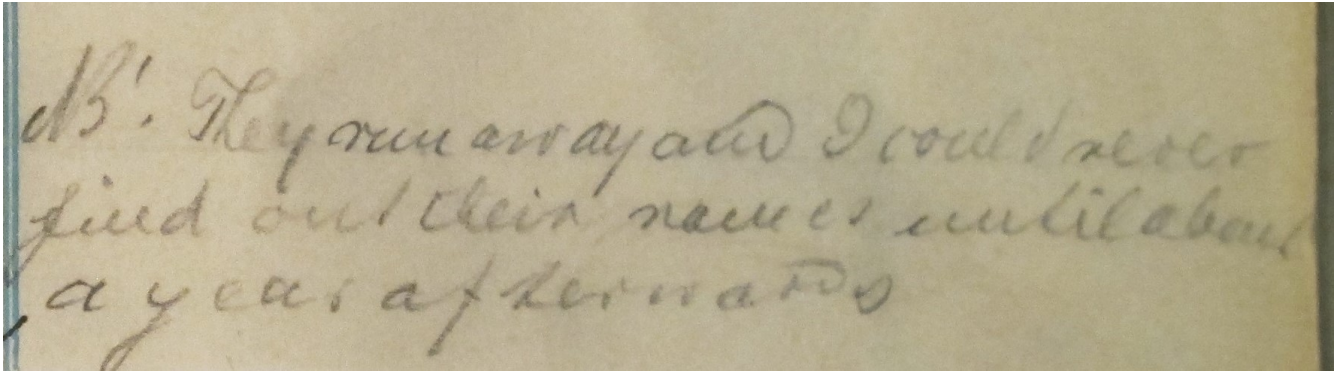 NB. They run away and I could never
find out their names until about
a year afterwards